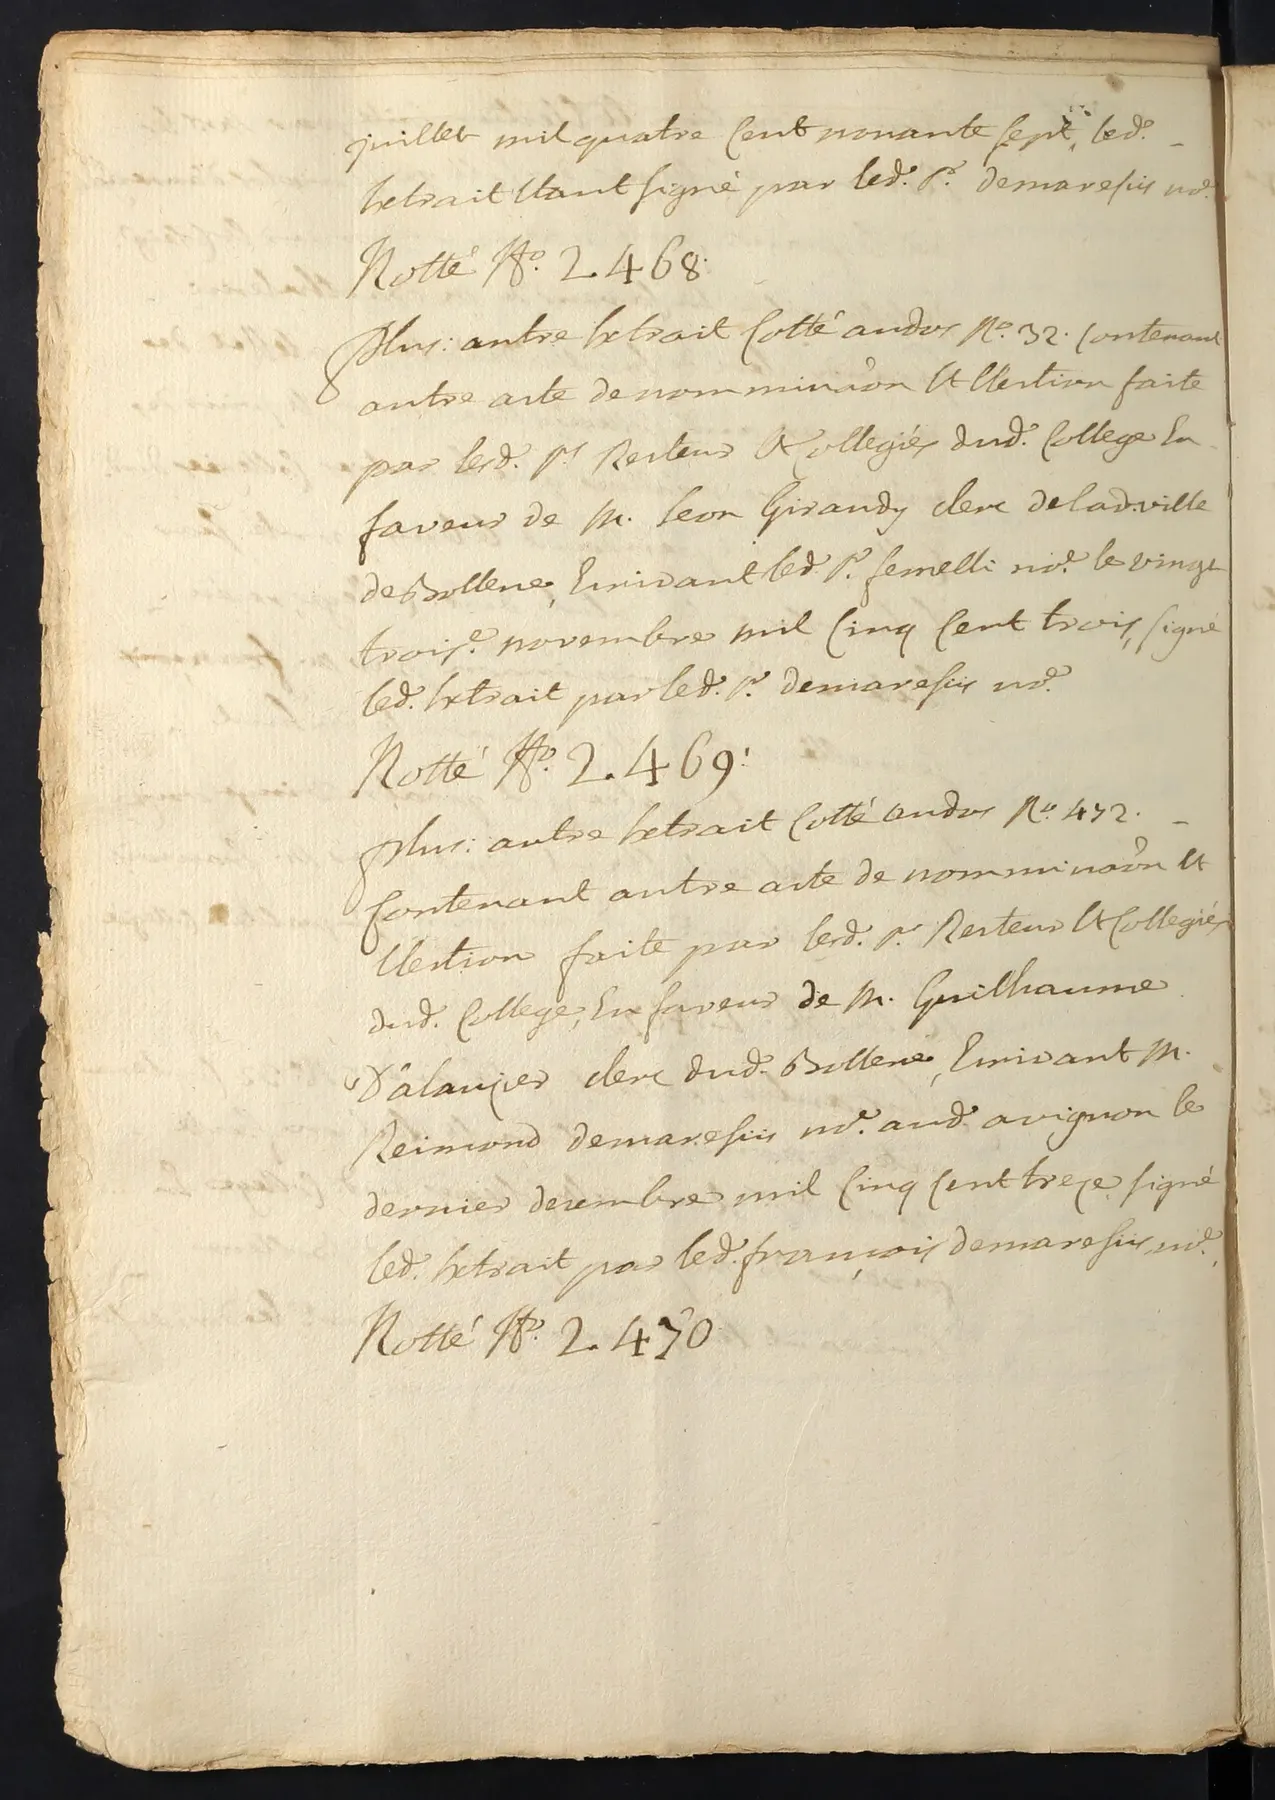 juillet mil quatre cent nonante sept, led.^e
hetrait Etant signé par led.^e s.^r demaresiis no.^e
Notté N.^o 2.468.
Plus: autre hetrait Cotté audos N.^o 32. Contenant
autre acte de nomminaôn Et Ellection faite
par lesd.^e s.^rs Recteur & Collegiés dud.^e College En
faveur de M. Leon Giraudy clerc de lad. ville
de Bollene, Ecrivant led.^e s.^r no.^e le vingt
trois.^e novembre mil Cinq Cent trois, signé
led.^e hetrait par led.^e s.^r demaresiis no.^e
Notté N.^o 2.469:
Plus: autre hetrait Cotté audos N.^o 472.
Contenant autre acte de nomminaôn Et
Ellection faite par lesd.^e s.^rs Recteur & Collegiés
dud.^e College, En faveur de M. Guilhaume
D'alauzier clerc dud.^e Bollene, Ecrivant M.
Reimond demaresiis no.^e aud.^e avignon le
dernier decembre mil Cinq Cent treze signé
led.^e hetrait par led.^e françois demaresiis, no.^e
Notté N.^o 2.470